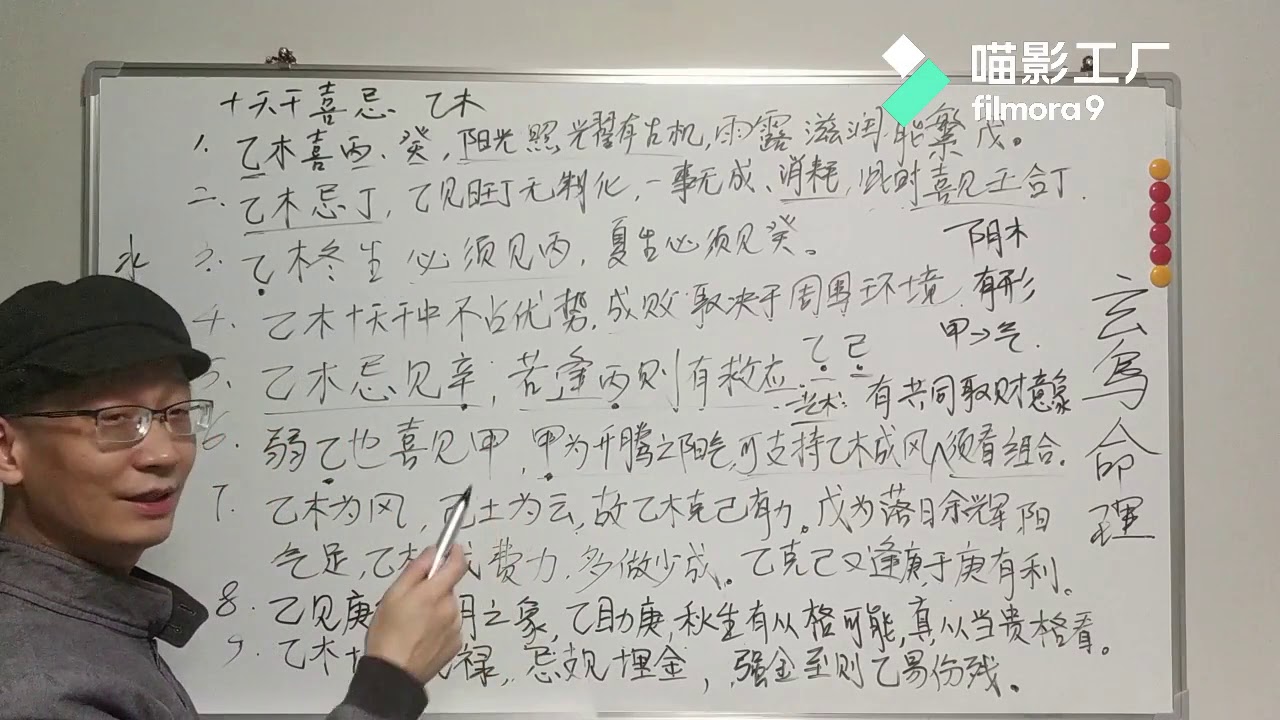 喵影工厂
filmora9
十天干喜忌、乙木
1. 乙木喜丙、癸，阳光照光耀有古机，雨露滋润能繁茂。
二、乙木忌丁，乙见旺丁无制化，一事无成、消耗，此时喜见壬合丁.
水
3. 乙木冬生必须见丙，夏生必须见癸。
阴木
4. 乙木十天干中不占优势，成败取决于周围环境
有形
甲→气.
5. 乙木忌见辛，若逢丙则有救应.
乙己
艺术: 有共同取财意象
6. 弱乙也喜见甲，甲为升腾之阳气，可支持乙木成风，须看组合.
7. 乙木为风，己土为云，故乙木克己有力。戊为落日余辉阳
气足，乙木 费力，多做少成。乙克己又逢庚于庚有利。
8. 乙见庚 月之象，乙助庚，秋生有从格可能，真从当贵格看。
9. 乙木 禄，忌支见埋金，强金至则乙易伤残。
玄鸟命理